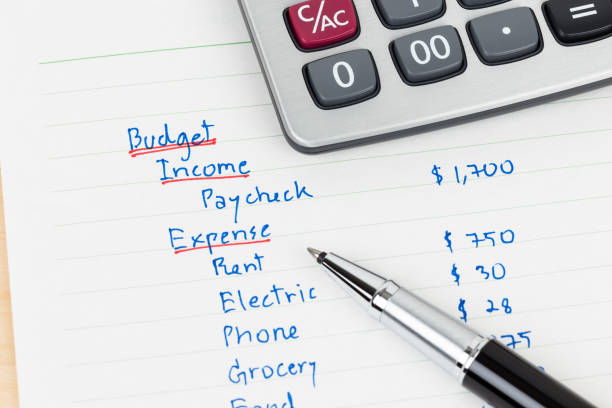 C/AC
0 00 . =
Budget
Income
Paycheck $ 1,700
Expense
Rent $ 750
Electric $ 30
Phone $ 28
Grocery